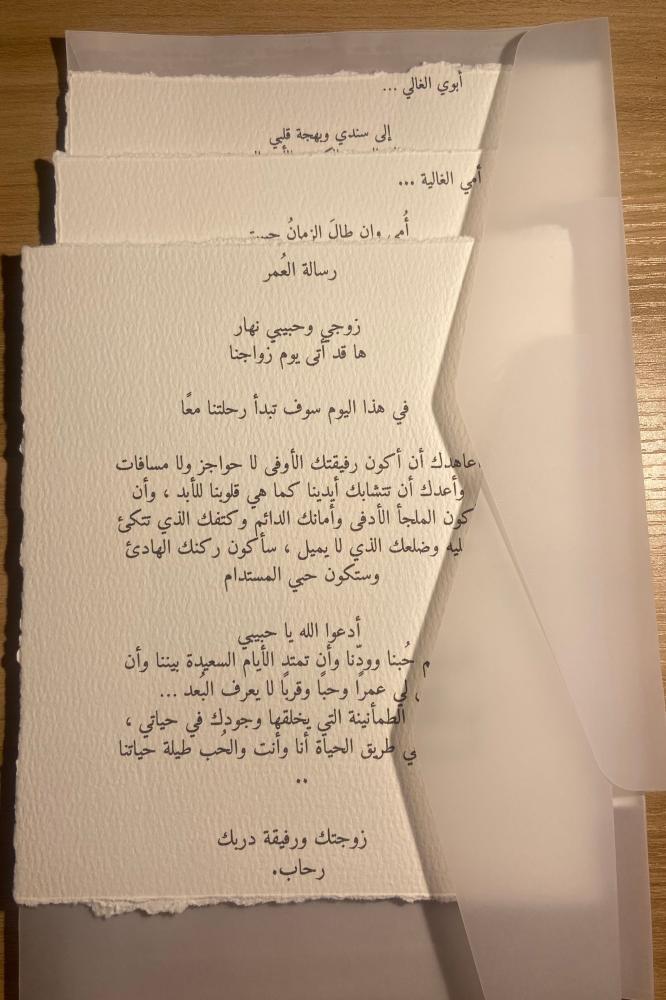 أبوي الغالي ...
إلى سندي وبهجة قلبي
أمي الغالية ...
أُمي وإن طالَ الزمانُ
رسالة العُمر
زوجي وحبيبي نهار
ها قد أتى يوم زواجنا
في هذا اليوم سوف تبدأ رحلتنا معًا
عاهدك أن أكون رفيقتك الأوفى لا حواجز ولا مسافات
وأعدك أن تتشابك أيدينا كما هي قلوبنا للأبد ، وأن
كون الملجأ الأدفى وأمانك الدائم وكتفك الذي تتكئ
ليه وضلعك الذي لا يميل ، سأكون ركنك الهادئ
وستكون حبي المستدام
أدعوا الله يا حبيبي
م حُبنا وودّنا وأن تمتد الأيام السعيدة بيننا وأن
لي عمرًا وحبًا وقربًا لا يعرف البُعد ...
الطمأنينة التي يخلقها وجودك في حياتي ،
ي طريق الحياة أنا وأنت والحُب طيلة حياتنا
..
زوجتك ورفيقة دربك
رحاب.